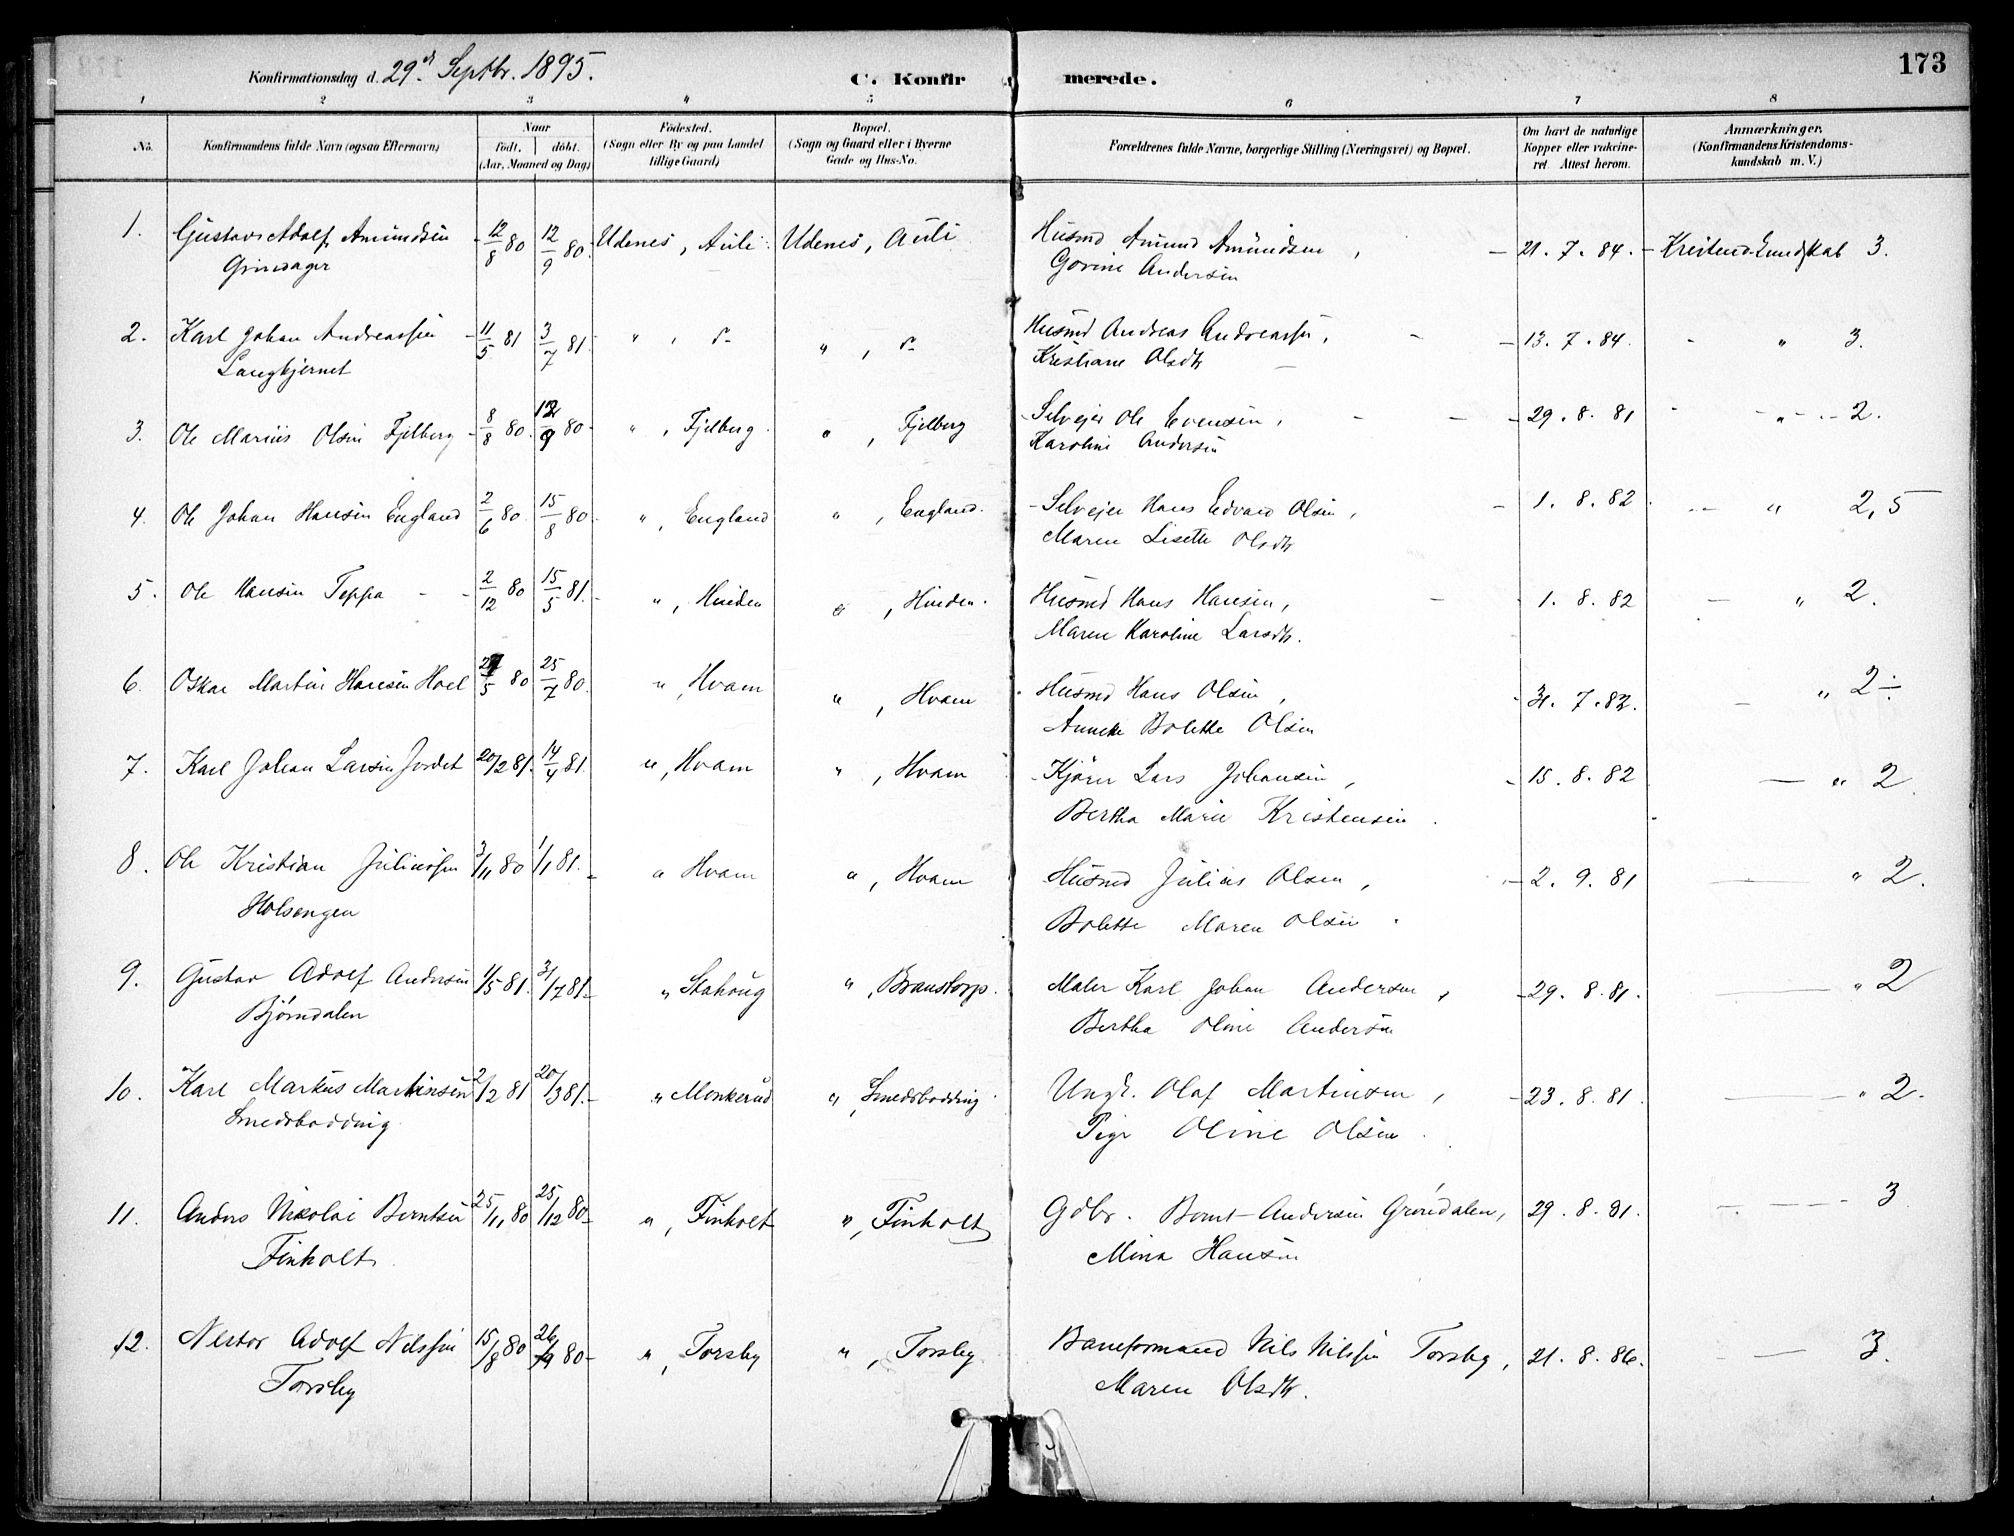 173
Konfirmationsdag d. 29de Septbr. 1895.
C. Konfirmerede.
1 2 3 4 5 6 7 8
No. Konfirmandens fulde Navn (ogsaa Efternavn) Naar Födested. Bopæl. Forældrenes fulde Navne, borgerlige Stilling (Næringsvei) og Bopæl. Om havt de naturlige Anmærkninger.
født. döbt. (Sogn eller By og paa Landet (Sogn og Gaard eller i Byerne Kopper eller vakcine- (Konfirmandens Kristendoms-
(Aar, Maaned og Dag) tillige Gaard) Gade og Hus-No. ret. Attest herom. kundskab m. V.)
1. Gustav Adolf Amundsen 12/8 80 12/9 80. Udenes, Auli Udenes, Auli Husmd Amund Amundsen, 21. 7. 84. Kristendkundskab 3.
Grinager Gorine Andersen
2. Karl Johan Andreassen 11/5 81 3/7 81. " , do " , do Husmd Andreas Andreassen, 13. 7. 84. " 3.
Langkjernet Kristiane Olsdtr
3. Ole Marius Olsen Fjelberg 8/8 80. 12/9 80 " , Fjelberg " , Fjelberg Selveier Ole Evensen, 29. 8. 81 " 2.
Karoline Andersen
4. Ole Johan Hansen England 2/6 80. 15/8 80. " , England " , England. Selveier Hans Edvard Olsen, 1. 8. 82 " 2,5
Maren Lisette Olsdtr
5. Ole Hansen Teppa 2/12 80 15/5 81. " , Huiden " , Huiden. Husmd Hans Hansen, 1. 8. 82 " 2.
Maren Karoline Larsdtr.
6. Oskar Martin Hansen Hoel 27/5 80 25/7 80. " , Hvam " , Hvam Husmd Hans Olsen, 31. 7. 82. " 2÷
Anneke Bolette Olsen
7. Karl Johan Larsen Jordet 20/2 81. 17/4 81 " , Hvam " , Hvam Kjörer Lars Johansen, 15. 8. 82 " 2
Bertha Marie Kristensen.
8. Ole Kristian Juliussen 3/11 80 1/1 81. " Hvam " , Hvam Husmd Julius Olsen, 2. 9. 81 " 2.
Holsengen Bolette Maren Olsen.
9. Gustav Adolf Andersen 1/5 81. 31/7 81. " Stahaug " , Branstorp. Maler Karl Johan Andersen, 29. 8. 81. " 2
Björndalen Bertha Oline Andersen
10. Karl Markus Martinsen 2/2 81 20/3 81. " Monkerud " , Smedsbødding. Ungk. Olaf Martinsen, 23. 8. 81. " 2.
Smedsbødding Pige Oline Olsen.
11. Anders Nikolai Berntsen 25/11 80 25/12 80 " , Finholt " , Finholt Gdbr. Bernt Andersen Gröndalen, 29. 8. 81. 3
Finholt Mina Hansen
12. Nestor Adolf Nilssen 15/8 80 26/9 80 " , Torsby " , Torsby. Baneformand Nils Nilssen Torsby, 21. 8. 86. 3.
Torsby Maren Olsdtr.